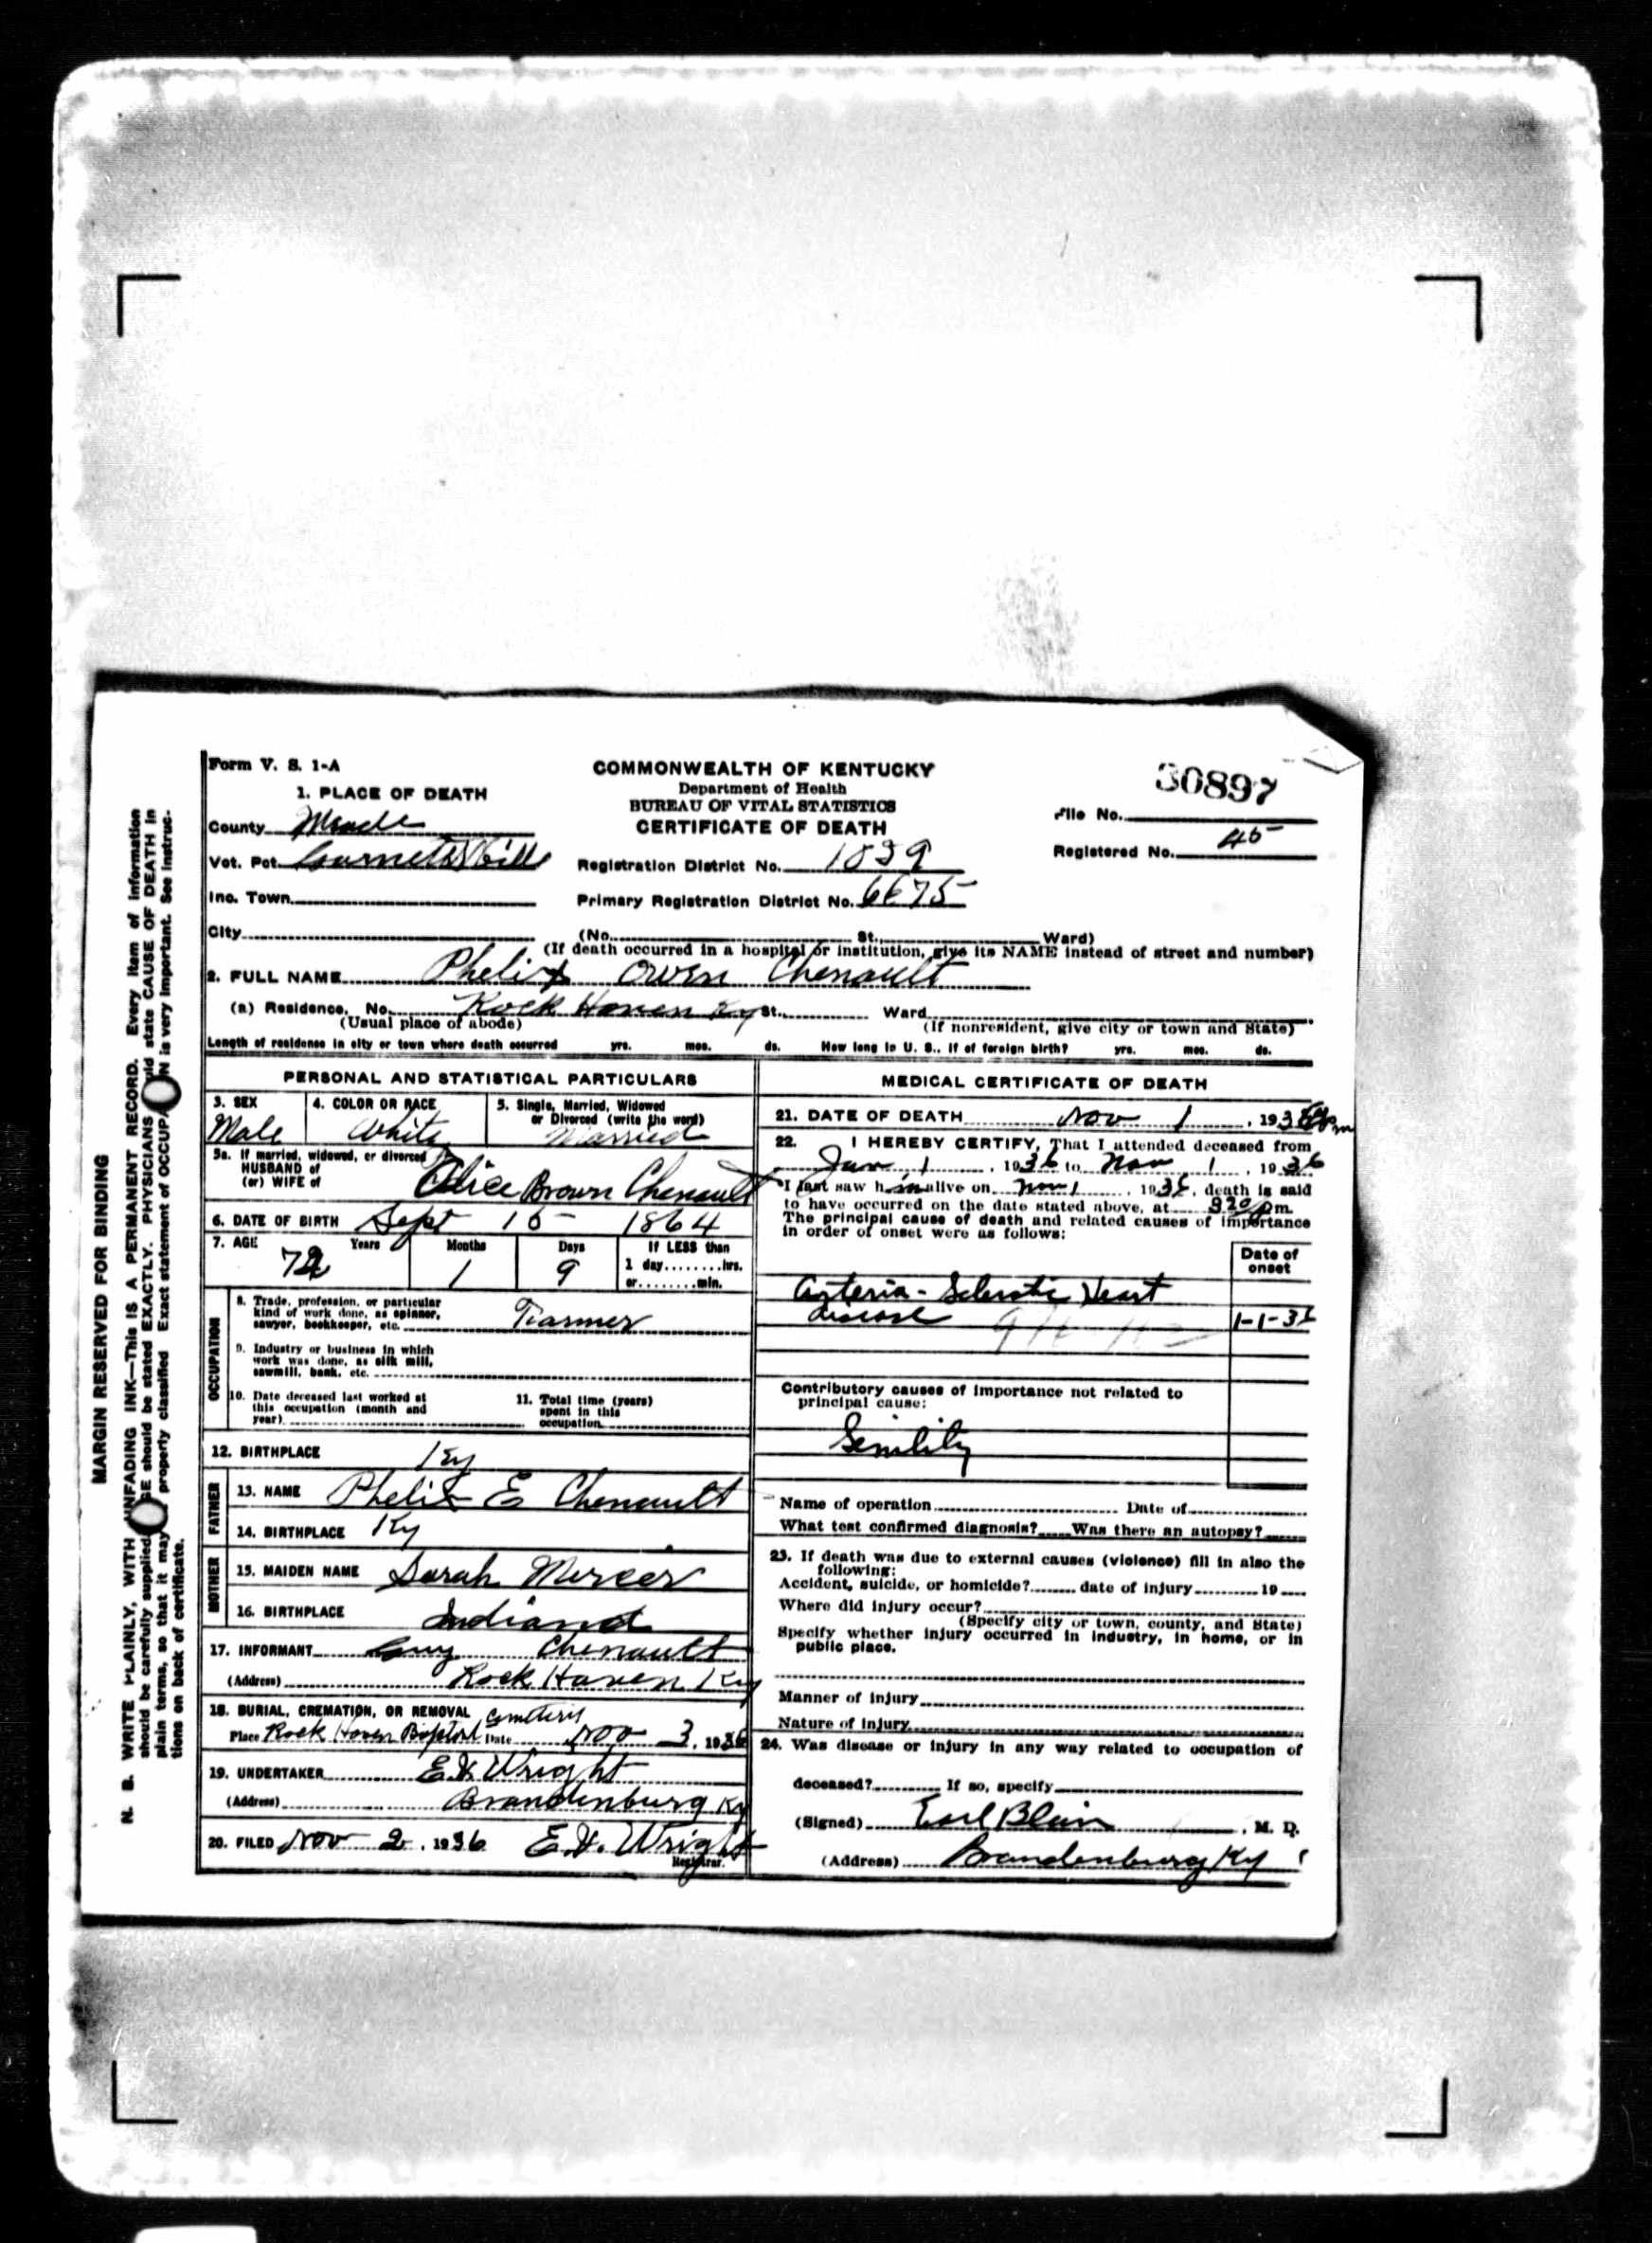 Form V. S. 1-A
COMMONWEALTH OF KENTUCKY
Department of Health
BUREAU OF VITAL STATISTICS
CERTIFICATE OF DEATH
30897
File No.
Registered No. 45
1. PLACE OF DEATH
County Meade
Vot. Pct. Garnettsville
Inc. Town
City
Registration District No. 1039
Primary Registration District No. 6675
(No. St., Ward)
(If death occurred in a hospital or institution, give its NAME instead of street and number)
2. FULL NAME Phelix Owen Chenault
(a) Residence. No. Rock Haven Ky St., Ward
(Usual place of abode) (If nonresident, give city or town and State)
Length of residence in city or town where death occurred yrs. mos. ds. How long in U. S., if of foreign birth? yrs. mos. ds.
PERSONAL AND STATISTICAL PARTICULARS
3. SEX
Male
4. COLOR OR RACE
White
5. Single, Married, Widowed
or Divorced (write the word)
Married
5a. If married, widowed, or divorced
HUSBAND of
(or) WIFE of
Alice Brown Chenault
6. DATE OF BIRTH Sept 15 1864
7. AGE Years Months Days If LESS than
72 1 9 1 day........hrs.
or........min.
OCCUPATION
8. Trade, profession, or particular
kind of work done, as spinner,
sawyer, bookkeeper, etc. Farmer
9. Industry or business in which
work was done, as silk mill,
sawmill, bank, etc.
10. Date deceased last worked at
this occupation (month and
year)
11. Total time (years)
spent in this
occupation
12. BIRTHPLACE Ky
FATHER
13. NAME Phelix E Chenault
14. BIRTHPLACE Ky
MOTHER
15. MAIDEN NAME Sarah Mercer
16. BIRTHPLACE Indiana
17. INFORMANT Guy Chenault
(Address) Rock Haven Ky
18. BURIAL, CREMATION, OR REMOVAL Cemetery
Place Rock Haven Baptist Date Nov 3, 1936
19. UNDERTAKER E.H. Wright
(Address) Brandenburg Ky
20. FILED Nov 2, 1936 E.H. Wright
Registrar.
MEDICAL CERTIFICATE OF DEATH
21. DATE OF DEATH Nov 1, 1936
22. I HEREBY CERTIFY, That I attended deceased from
Jan 1, 1936 to Nov 1, 1936
I last saw him alive on Nov 1, 1936, death is said
to have occurred on the date stated above, at 820 pm.
The principal cause of death and related causes of importance
in order of onset were as follows:
Date of
onset
Arteria-Sclerotic Heart
disease 1-1-36
Contributory causes of importance not related to
principal cause:
Senility
Name of operation Date of
What test confirmed diagnosis? Was there an autopsy?
23. If death was due to external causes (violence) fill in also the
following:
Accident, suicide, or homicide? date of injury 19
Where did injury occur?
(Specify city or town, county, and State)
Specify whether injury occurred in industry, in home, or in
public place.
Manner of injury
Nature of injury
24. Was disease or injury in any way related to occupation of
deceased? If so, specify
(Signed) Earl Blain, M. D.
(Address) Brandenburg Ky
MARGIN RESERVED FOR BINDING
N. B. WRITE PLAINLY, WITH UNFADING INK—THIS IS A PERMANENT RECORD. Every item of information
should be carefully supplied. AGE should be stated EXACTLY. PHYSICIANS should state CAUSE OF DEATH in
plain terms, so that it may property classified Exact statement of OCCUPATION is very important. See instruc-
tions on back of certificate.